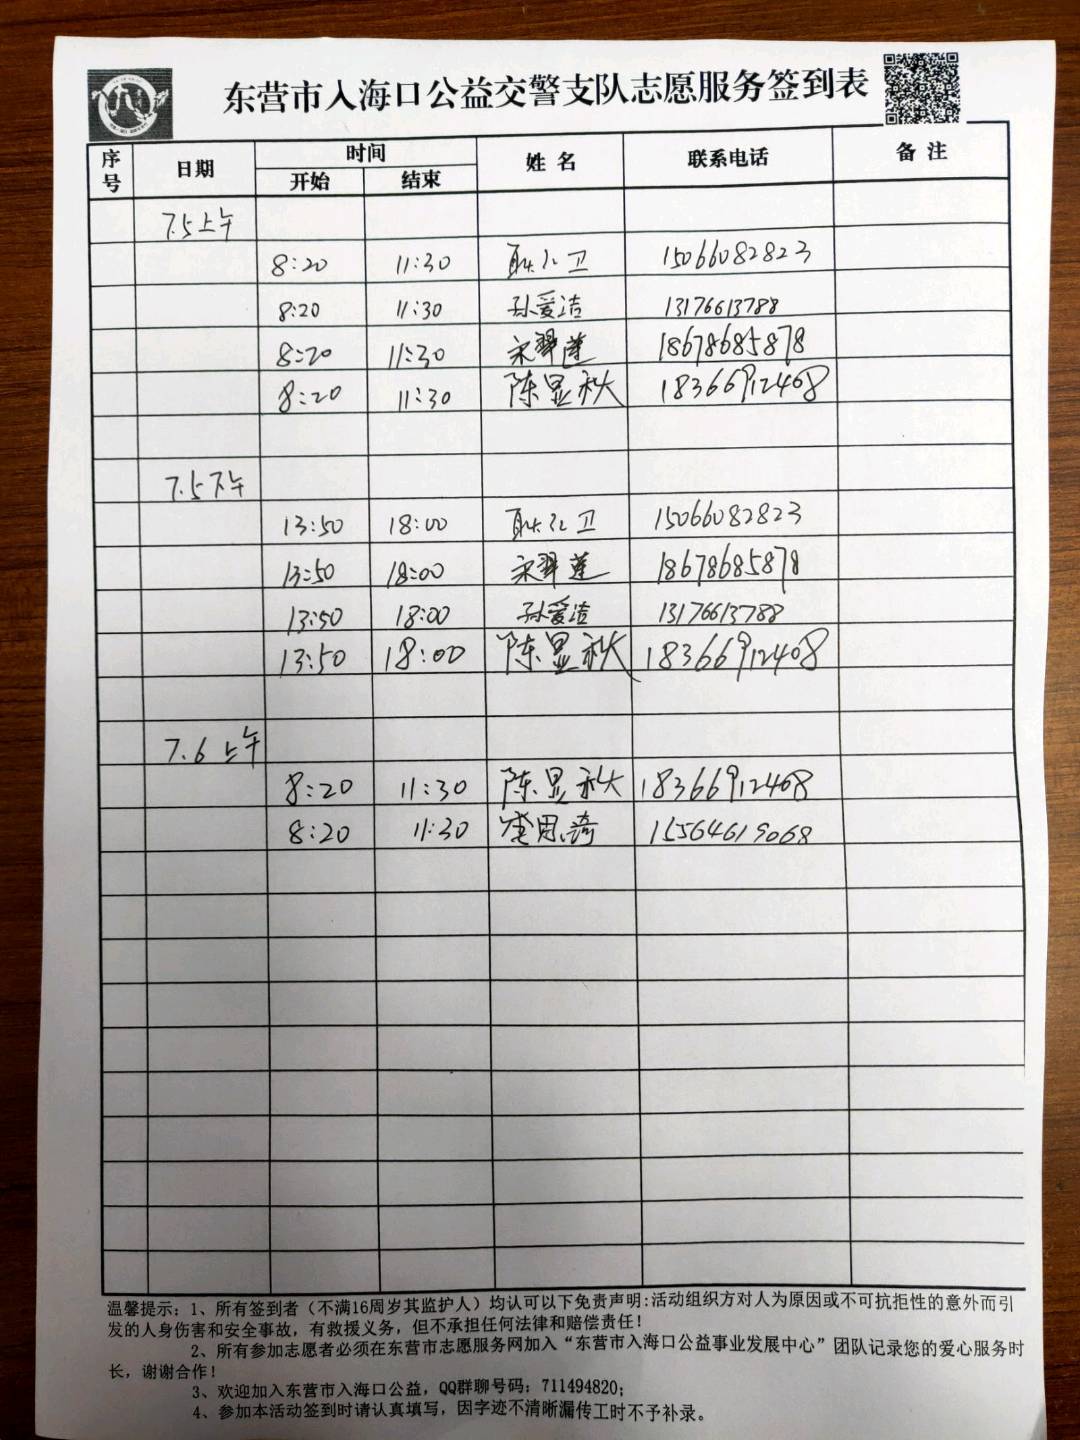 东营市入海口公益交警支队志愿服务签到表
序号 日期 时间 开始 结束 姓名 联系电话 备注
7.5上午
8:20 11:30 耿红卫 15066082823
8:20 11:30 孙爱洁 13176613788
8:20 11:30 宋翠莲 18678685878
8:20 11:30 陈显秋 18366912408
7.5下午
13:50 18:00 耿红卫 15066082823
13:50 18:00 宋翠莲 18678685878
13:50 18:00 孙爱洁 13176613788
13:50 18:00 陈显秋 18366912408
7.6上午
8:20 11:30 陈显秋 18366912408
8:20 11:30 15564619068
温馨提示：1、所有签到者（不满16周岁其监护人）均认可以下免责声明:活动组织方对人为原因或不可抗拒性的意外而引
发的人身伤害和安全事故，有救援义务，但不承担任何法律和赔偿责任！
2、所有参加志愿者必须在东营市志愿服务网加入“东营市入海口公益事业发展中心”团队记录您的爱心服务时
长，谢谢合作！
3、欢迎加入东营市入海口公益，QQ群聊号码：711494820；
4、参加本活动签到时请认真填写，因字迹不清晰漏传工时不予补录。